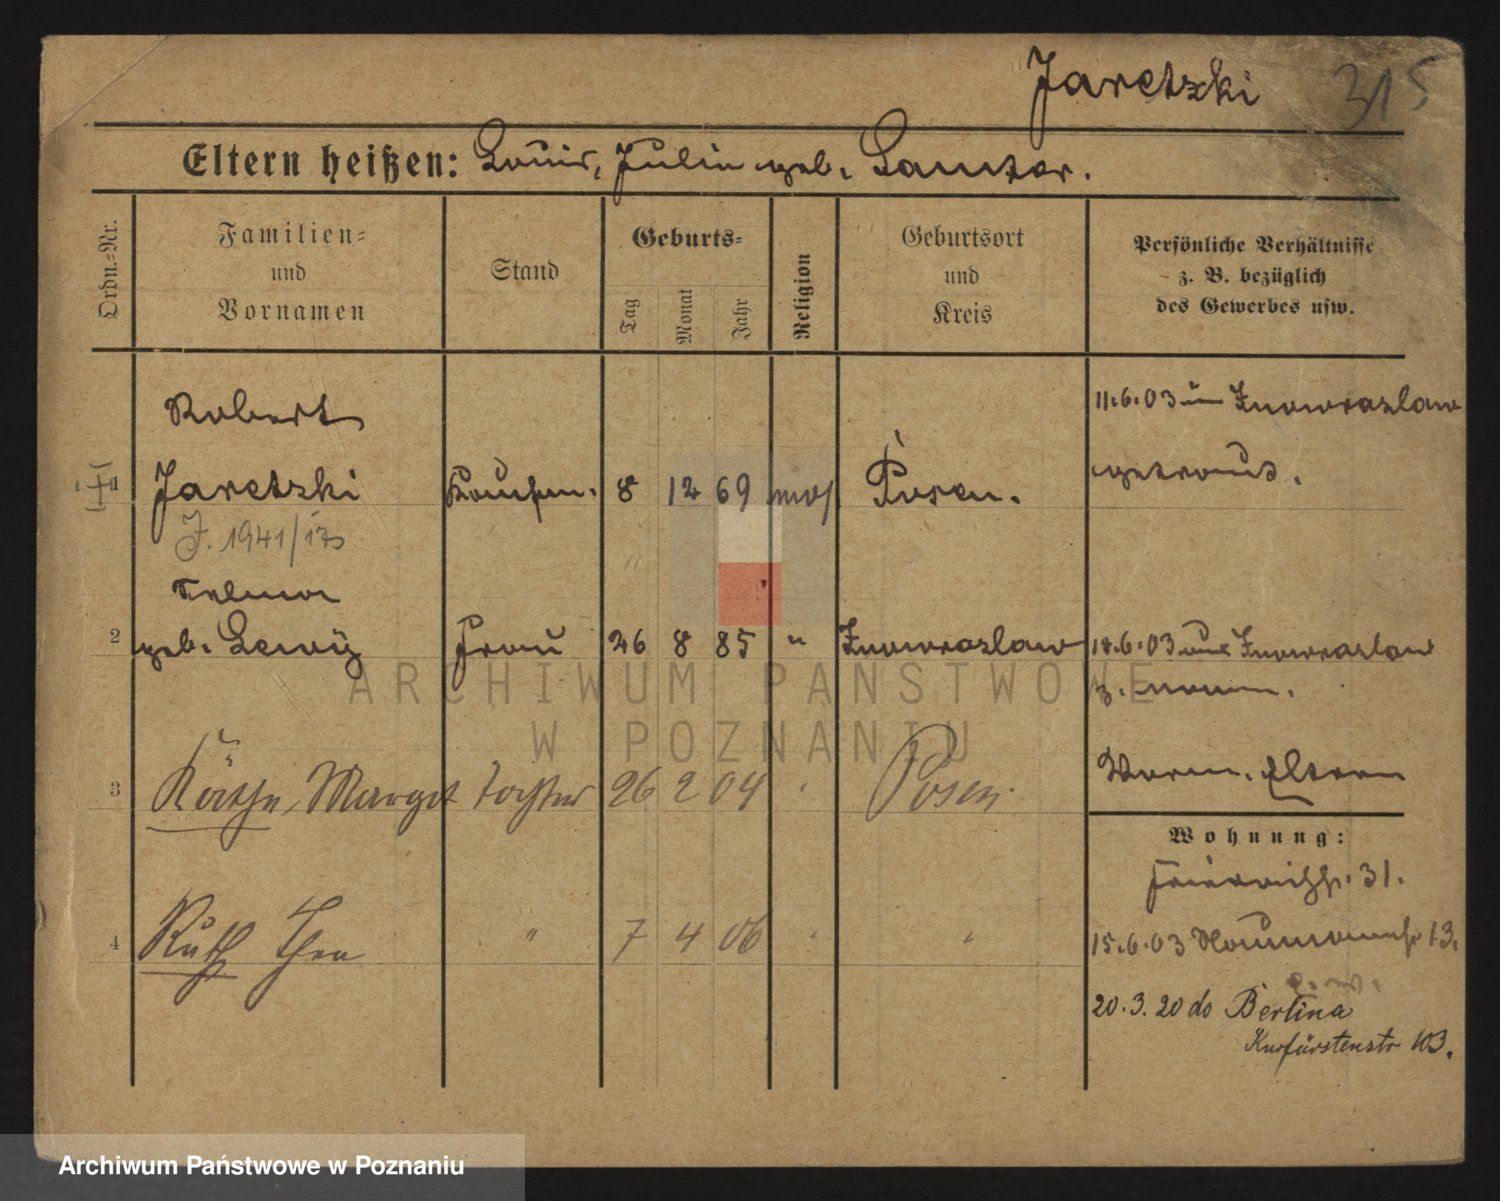 Jaretzki 315
Eltern heißen: Louis, Julie geb. Kantor.
Ordn.-Nr.
Familien-
und
Vornamen
Stand
Geburts-
Tag
Monat
Jahr
Religion
Geburtsort
und
Kreis
Persönliche Verhältnisse
z. B. bezüglich
des Gewerbes usw.
Robert
1 Jaretzki Kaufm. 8 12 69 mos. Posen.
11.6.03 in Inowrazlaw
getraut.
J. 1941/
Selma
2 geb. Lewy Frau 26 8 85 " Inowrazlaw
6.03 aus Inowrazlaw
3 Käthe, Margot Tochter 26 2 04 " Posen.
Eltern
Wohnung:
31.
4 Ruth Thea " 7 4 06 " "
15.6.03 Naumannstr 13.
20.3.20 do Berlina
Kurfürstenstr 103.
ARCHIWUM PAŃSTWOWE
W POZNANIU
Archiwum Państwowe w Poznaniu